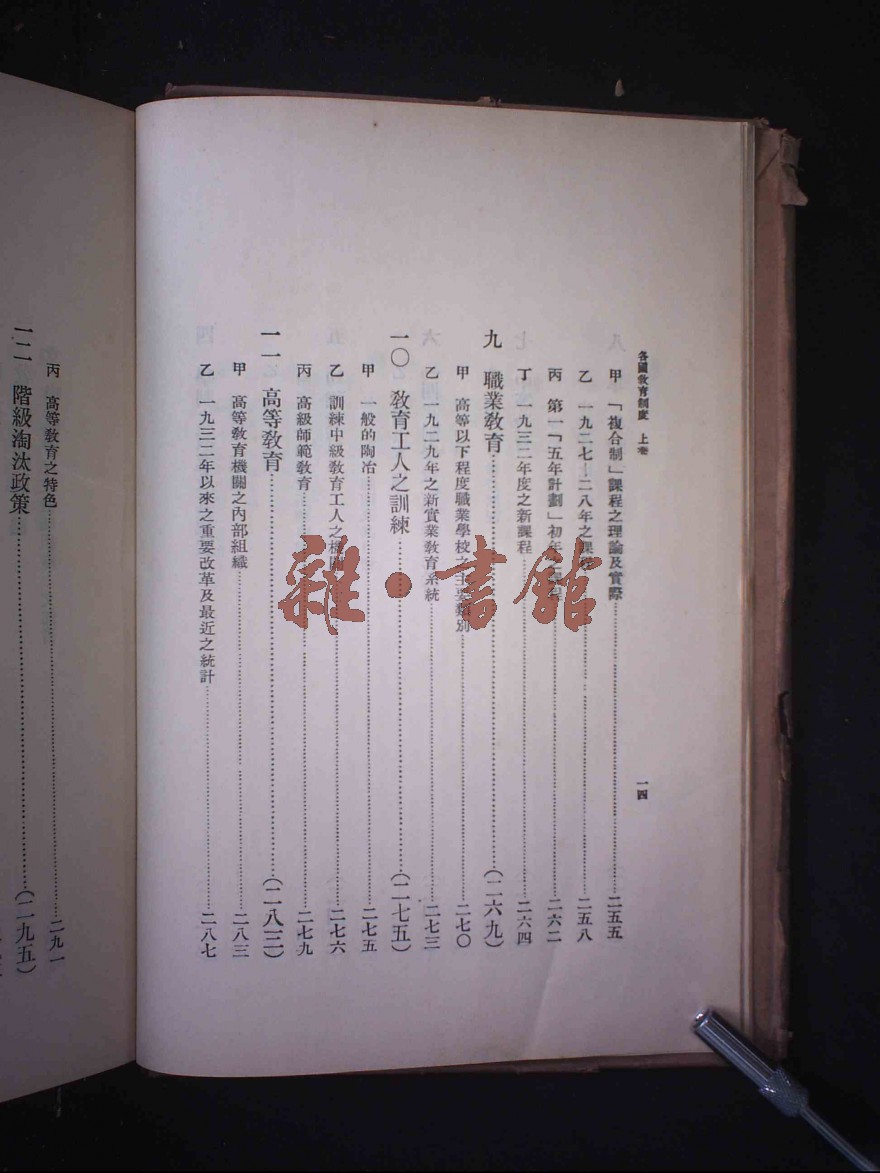 各國教育制度 上卷
一四
甲 「複合制」課程之理論及實際……二五五
乙 一九二七—二八年之課程……二五八
丙 第一「五年計劃」初年之課程……二六二
丁 一九三二年度之新課程……二六四
九 職業教育……(二六九)
甲 高等以下程度職業學校之主要類別……二七〇
乙 一九二九年之新實業教育系統……二七三
一〇 教育工人之訓練……(二七五)
甲 一般的陶冶……二七五
乙 訓練中級教育工人之機關……二七六
丙 高級師範教育……二七九
一一 高等教育……(二八三)
甲 高等教育機關之內部組織……二八三
乙 一九三二年以來之重要改革及最近之統計……二八七
丙 高等教育之特色……二九一
一二 階級淘汰政策……(二九五)
雜·書館